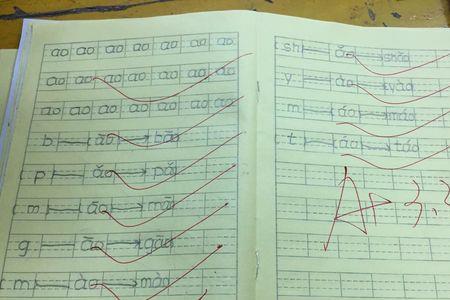 ao ao ao ao ao ao ao
ao ao ao ao ao ao ao
ao ao ao ao ao ao ao
b — āo → bāo
p — ǎo → pǎo
m — āo → māo
g — āo → gāo
m — ào → mào
sh — ǎo → shǎo
y — áo → yáo
m — áo → máo
t — áo → táo
A